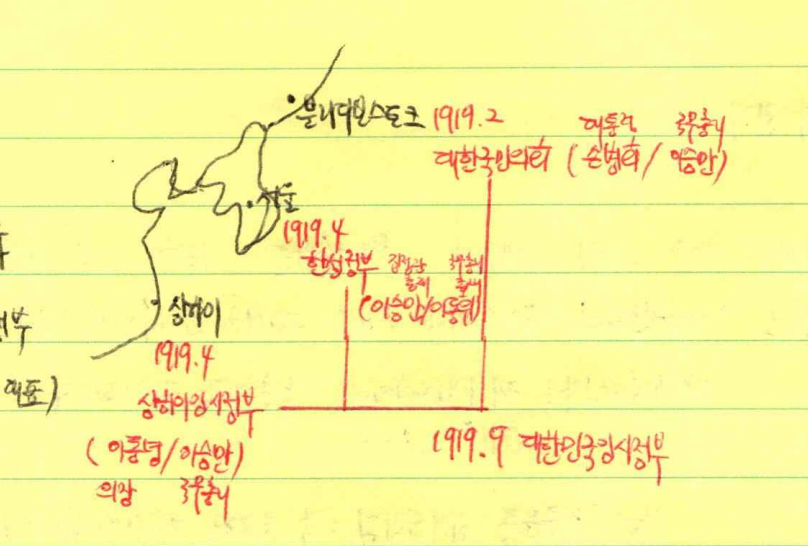 블라디보스토크
1919.2
대통령 국무총리
대한국민의회 (손병희/이승만)
서울
1919.4
한성정부 집정관 국무총리
총재 총재
(이승만/이동휘)
상하이
1919.4
상하이임시정부
(이동녕/이승만)
의장 국무총리
1919.9 대한민국임시정부
부
대표)